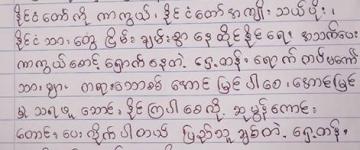 နိုင်ငံတော်ကို ကာကွယ်၊ နိုင်ငံတော်အကျိုး သယ်ပိုး၊
နိုင်ငံသားတွေ ငြိမ်းချမ်းစွာ နေထိုင်နိုင်ရေး အသက်ပေး
ကာကွယ်စောင့်ရှောက်နေတဲ့ ရှေ့တန်းရောက် တပ်မတော်
သားများ ဘေးဘောက်အောင်မြင်ပါစေ၊ အောင်မြင်
မှု သရဖူဆောင်းနိုင်ကြပါစေလို့ ဆုမွန်ကောင်း
တောင်းပေးလိုက်ပါတယ် ပြည်သူချစ်တဲ့ ရှေ့တန်း